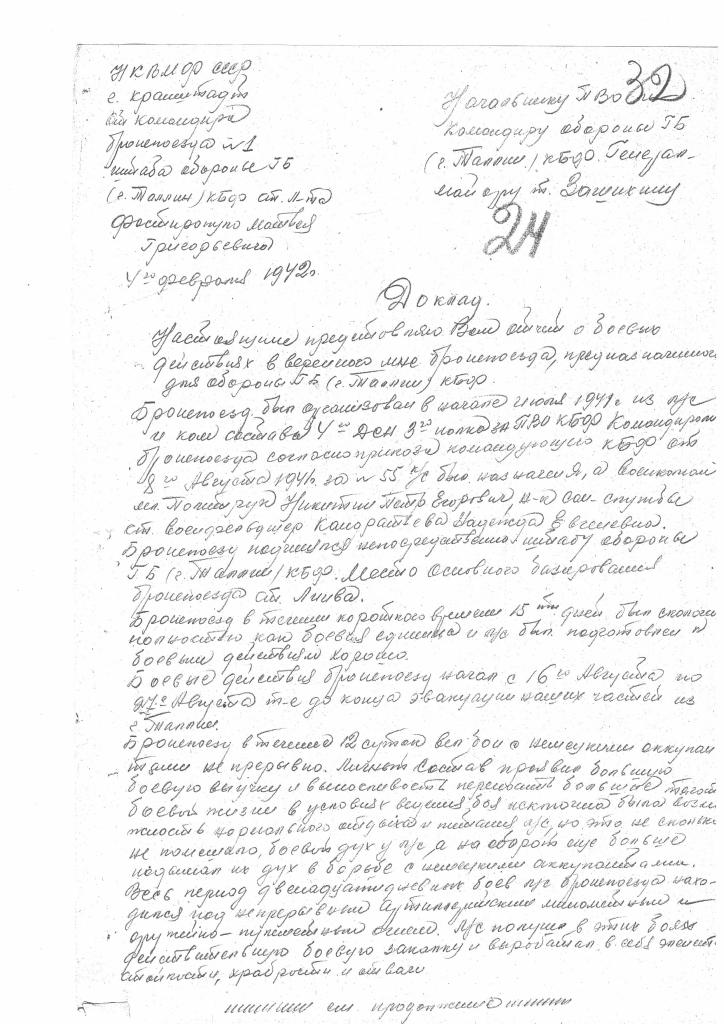 НКВМФ СССР
г. Кронштадт
от командира
бронепоезда №1
штаба обороны ГБ
(г. Таллин) КБФ ст. л-та
Фостиропуло Матвея
Григорьевича
4го февраля 1942г.
32
Начальнику ПВО и
Командиру обороны ГБ
(г. Таллин) КБФ. Генерал-
майору т. Зашихину
24
Доклад.
Настоящим представляю Вам отчет о боевых
действиях вверенного мне бронепоезда, предназначенного
для обороны ГБ (г. Таллин) КБФ.
Бронепоезд был организован в начале июля 1941г. из л/с
и ком состава 4го Дсн 3го полка ЗА ПВО КБФ Командиром
бронепоезда согласно приказа командующего КБФ от
8го Августа 1941г. за № 55 был назначен Я, а военкомом
мл. Политрук Никитин Петр Егорович, н-к сан-службы
ст. военфельдшер Кондратьева Надежда Евгеневна.
Бронепоезд подчинялся непосредственно штабу обороны
ГБ (г. Таллин) КБФ. Место Основного базирования
бронепоезда ст. Лиива.
Бронепоезд в течении короткого времени 15ти дней был сколочен
полностью как боевая единица и л/с был подготовлен к
боевым действиям хорошо.
Боевые действия бронепоезд начал с 16го Августа по
27е Августа т-е до конца эвакуации наших частей из
г. Таллин.
Бронепоезд в течение 12 суток вел бои с немецкими оккупан
тами не прерывно. Личный Состав проявил большую
боевую выучку и выносливость переносить большие тягот
боевой жизни в условиях ведения боя исключена была возмо
жность нормального отдыха и питания л/с, но это, не сколько
не помешало, боевой дух у л/с, а на оборот еще больше
подымал их дух в борьбе с немецкими оккупантами.
Весь период двенадцатидневных боев л/с бронепоезда нахо-
дился под непрерывным Артиллерийским минометным и
ружейно-пулеметным огнем. Л/с получил в этих боях
действительную боевую закалку и выработал в себя элемент
стойкости, храбрости и отваги
см. продолжение